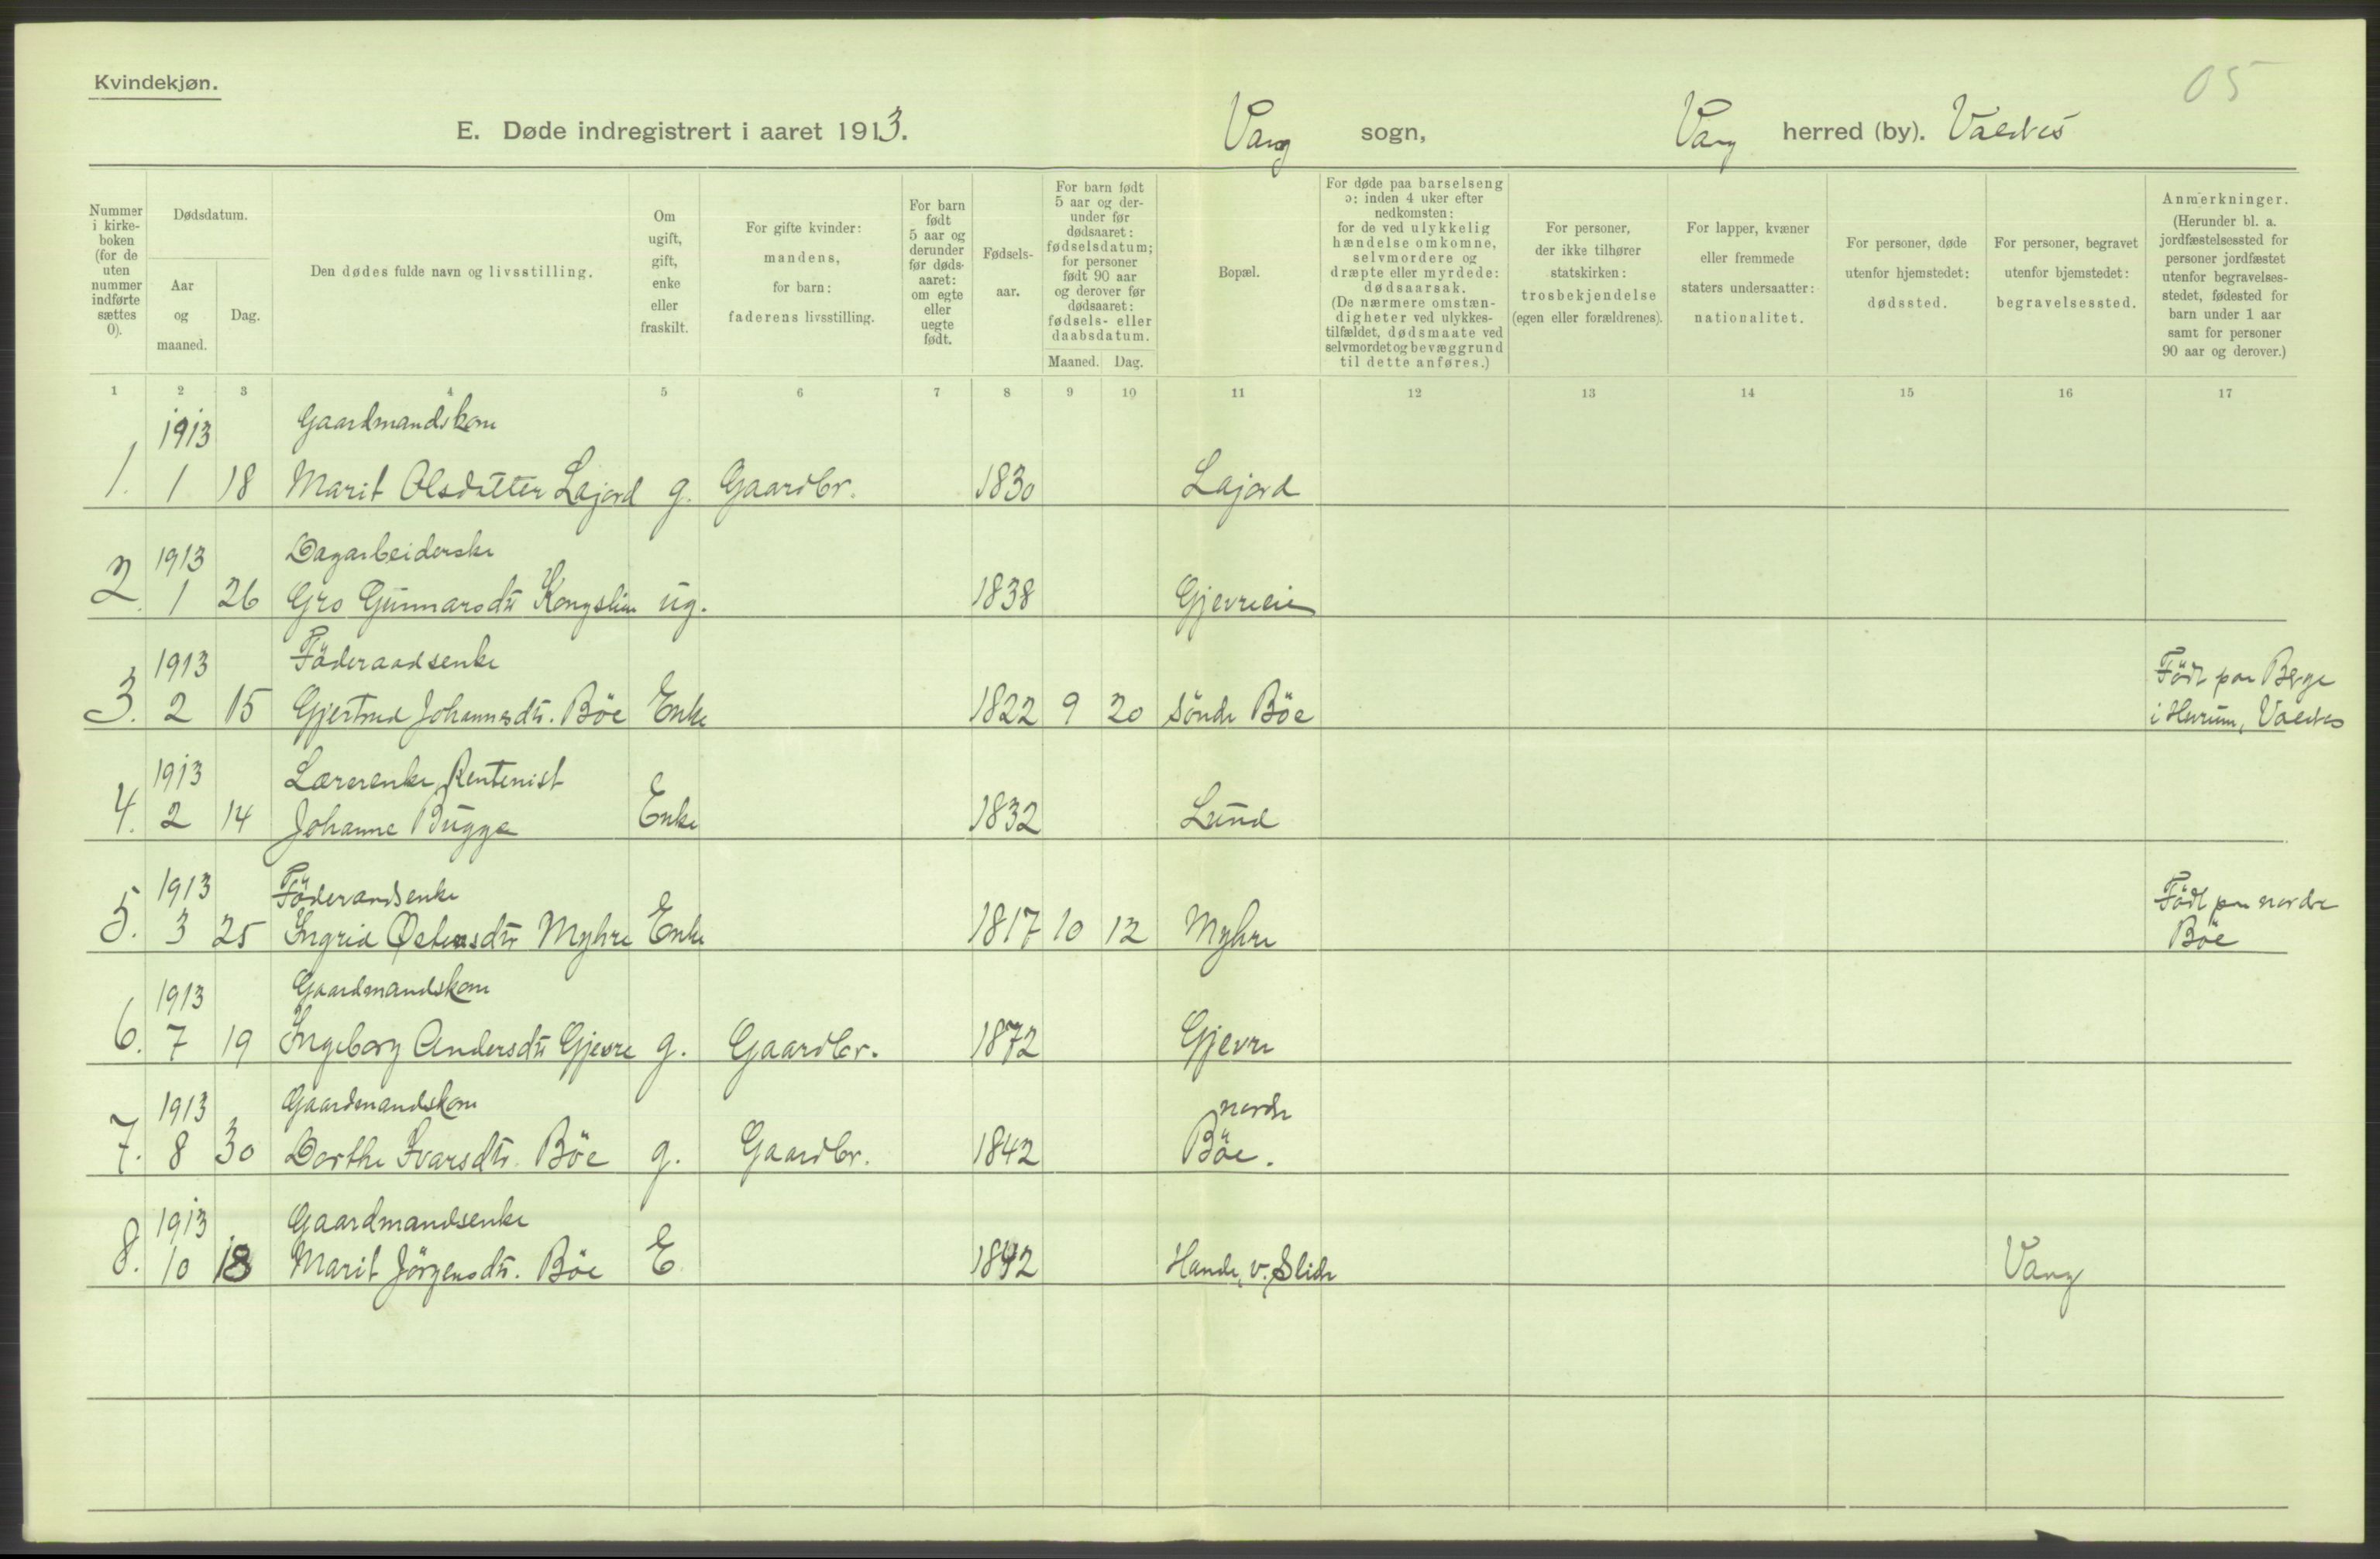 Kvindekjøn.
05
E. Døde indregistrert i aaret 1913. Vang sogn, Vang herred (by). Valdres
Nummer i kirke-boken (for de uten nummer indførte sættes 0).
Dødsdatum.
Aar og maaned.
Dag.
Den dødes fulde navn og livsstilling.
Om ugift, gift, enke eller fraskilt.
For gifte kvinder: mandens, for barn: faderens livsstilling.
For barn født 5 aar og derunder før døds-aaret: om egte eller uegte født.
Fødsels-aar.
For barn født 5 aar og der-under før dødsaaret: fødselsdatum; for personer født 90 aar og derover før dødsaaret: fødsels- eller daabsdatum.
Maaned. Dag.
Bopæl.
For døde paa barselseng ɔ: inden 4 uker efter nedkomsten: for de ved ulykkelig hændelse omkomne, selvmordere og dræpte eller myrdede: dødsaarsak. (De nærmere omstæn-digheter ved ulykkes-tilfældet, dødsmaate ved selvmordet og bevæggrund til dette anføres.)
For personer, der ikke tilhører statskirken: trosbekjendelse (egen eller forældrenes).
For lapper, kvæner eller fremmede staters undersaatter: nationalitet.
For personer, døde utenfor hjemstedet: dødssted.
For personer, begravet utenfor bjemstedet: begravelsessted.
Anmerkninger. (Herunder bl. a. jordfæstelsessted for personer jordfæstet utenfor begravelses-stedet, fødested for barn under 1 aar samt for personer 90 aar og derover.)
1 2 3 4 5 6 7 8 9 10 11 12 13 14 15 16 17
1913 Gaardmandskone
1. 1 18 Marit Olsdatter Lajord g. Gaardbr. 1830 Lajord
1913 Dagarbeiderske
2. 1 26 Gro Gunnarsdtr Kongslien ug. 1838 Gjevreeie
1913 Föderaadsenke Född paa Berge
3. 2 15 Gjertrud Johannesdtr. Böe Enke 1822 9 20 söndr Böe i Hurum, Valdres
1913 Lærerenke, Rentenist
4. 2 14 Johanne Bugge Enke 1832 Lund
1913 Föderaadsenke Född paa nordre
5. 3 25 Ingrid Østensdtr Myhre Enke 1817 10 12 Myhre Böe
1913 Gaardmandskone
6. 7 19 Ingeborg Andersdtr Gjevre g. Gaardbr. 1872 Gjevre
1913 Gaardmandskone nordre
7. 8 30 Dorthe Ivarsdtr. Böe g. Gaardbr. 1842 Böe.
1913 Gaardmandsenke
8. 10 18 Marit Jörgensdtr. Böe E 1842 Hande, v. Slidre Vang